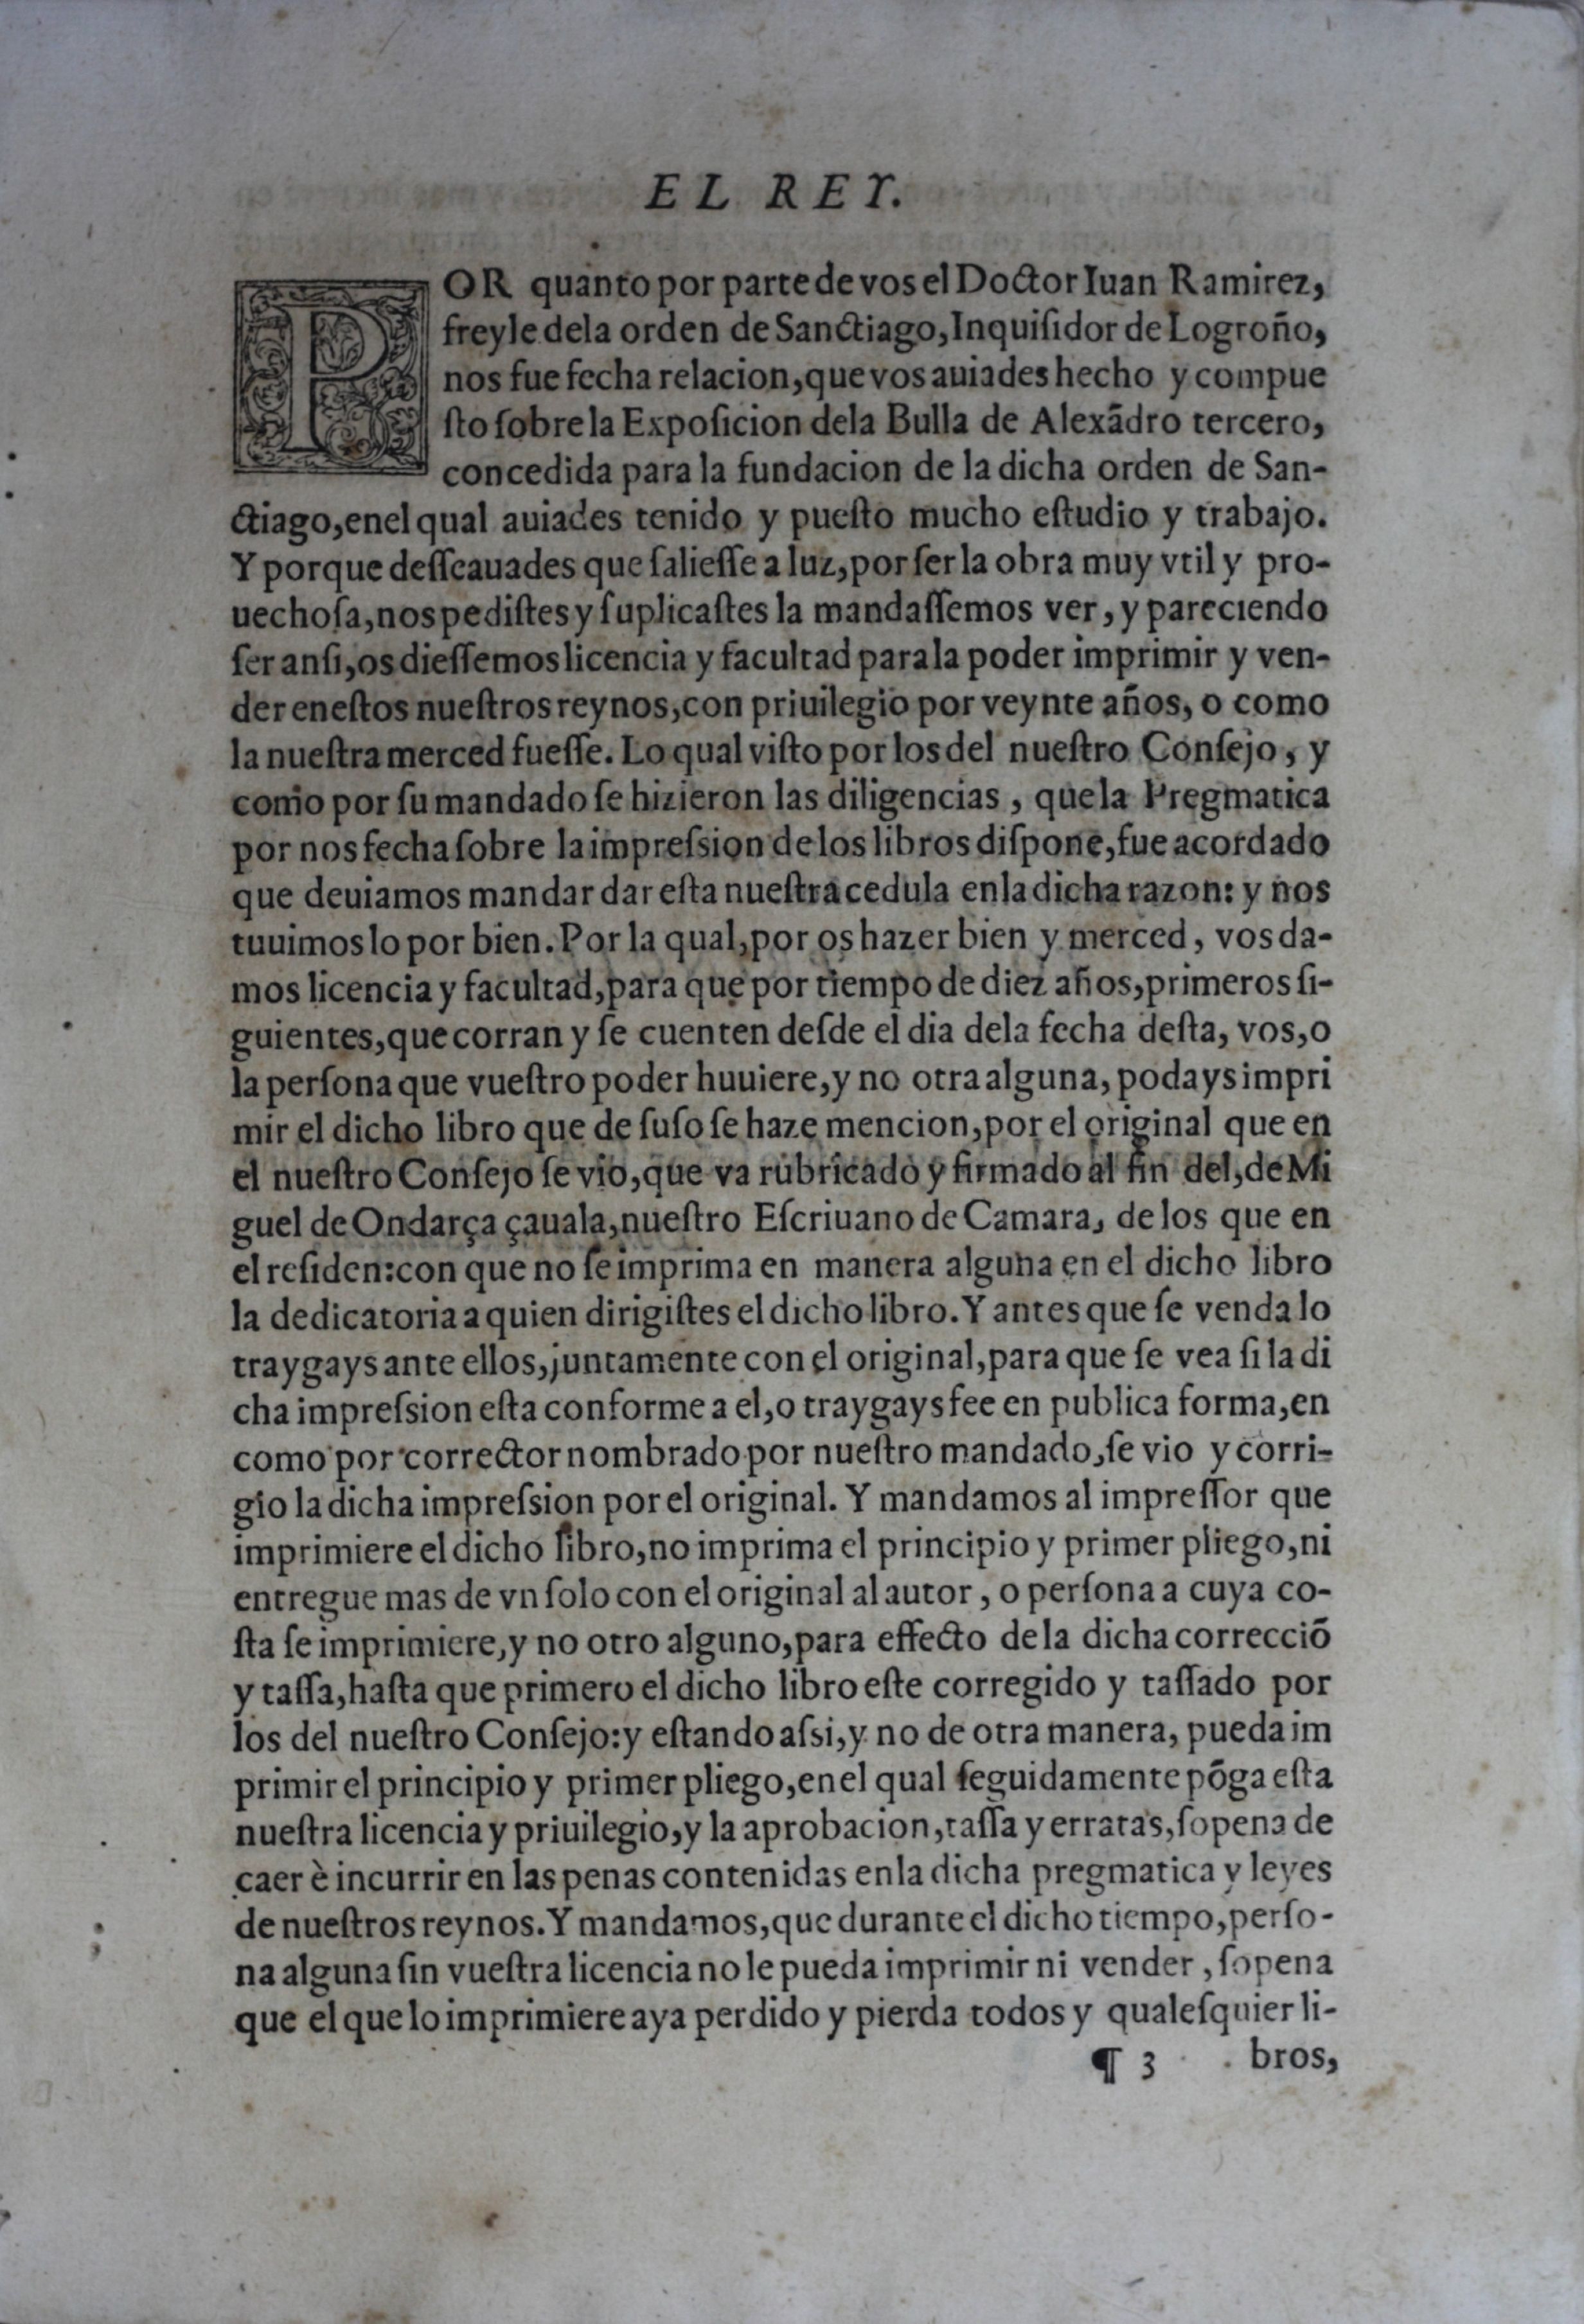 EL REY.
POR quanto por parte de vos el Doctor Iuan Ramirez,
freyle dela orden de Sanctiago, Inquiſidor de Logroño,
nos fue fecha relacion, que vos auiades hecho y compue
ſto ſobre la Expoſicion dela Bulla de Alexãdro tercero,
concedida para la fundacion de la dicha orden de San-
ctiago, enel qual auiades tenido y pueſto mucho eſtudio y trabajo.
Y porque deſſeauades que ſalieſſe a luz, por ſer la obra muy vtil y pro-
uechoſa, nos pediſtes y ſuplicaſtes la mandaſſemos ver, y pareciendo
ſer anſi, os dieſſemos licencia y facultad para la poder imprimir y ven-
der eneſtos nueſtros reynos, con priuilegio por veynte años, o como
la nueſtra merced fueſſe. Lo qual viſto por los del nueſtro Conſejo, y
como por ſu mandado ſe hizieron las diligencias, que la Pregmatica
por nos fecha ſobre la impreſsion de los libros diſpone, fue acordado
que deuiamos mandar dar eſta nueſtra cedula enla dicha razon: y nos
tuuimos lo por bien. Por la qual, por os hazer bien y merced, vos da-
mos licencia y facultad, para que por tiempo de diez años, primeros ſi-
guientes, que corran y ſe cuenten deſde el dia dela fecha deſta, vos, o
la perſona que vueſtro poder huuiere, y no otra alguna, podays impri
mir el dicho libro que de ſuſo ſe haze mencion, por el original que en
el nueſtro Conſejo ſe vio, que va rubricado y firmado al fin del, de Mi
guel de Ondarça çauala, nueſtro Eſcriuano de Camara, de los que en
el reſiden: con que no ſe imprima en manera alguna en el dicho libro
la dedicatoria a quien dirigiſtes el dicho libro. Y antes que ſe venda lo
traygays ante ellos, juntamente con el original, para que ſe vea ſi la di
cha impreſsion eſta conforme a el, o traygays fee en publica forma, en
como por corrector nombrado por nueſtro mandado, ſe vio y corri-
gio la dicha impreſsion por el original. Y mandamos al impreſſor que
imprimiere el dicho libro, no imprima el principio y primer pliego, ni
entregue mas de vn ſolo con el original al autor, o perſona a cuya co-
ſta ſe imprimiere, y no otro alguno, para effecto de la dicha correcciõ
y taſſa, haſta que primero el dicho libro eſte corregido y taſſado por
los del nueſtro Conſejo: y eſtando aſsi, y no de otra manera, pueda im
primir el principio y primer pliego, enel qual ſeguidamente põga eſta
nueſtra licencia y priuilegio, y la aprobacion, taſſa y erratas, ſopena de
caer è incurrir en las penas contenidas enla dicha pregmatica y leyes
de nueſtros reynos. Y mandamos, que durante el dicho tiempo, perſo-
na alguna ſin vueſtra licencia no le pueda imprimir ni vender, ſopena
que el que lo imprimiere aya perdido y pierda todos y qualeſquier li-
¶ 3 bros,